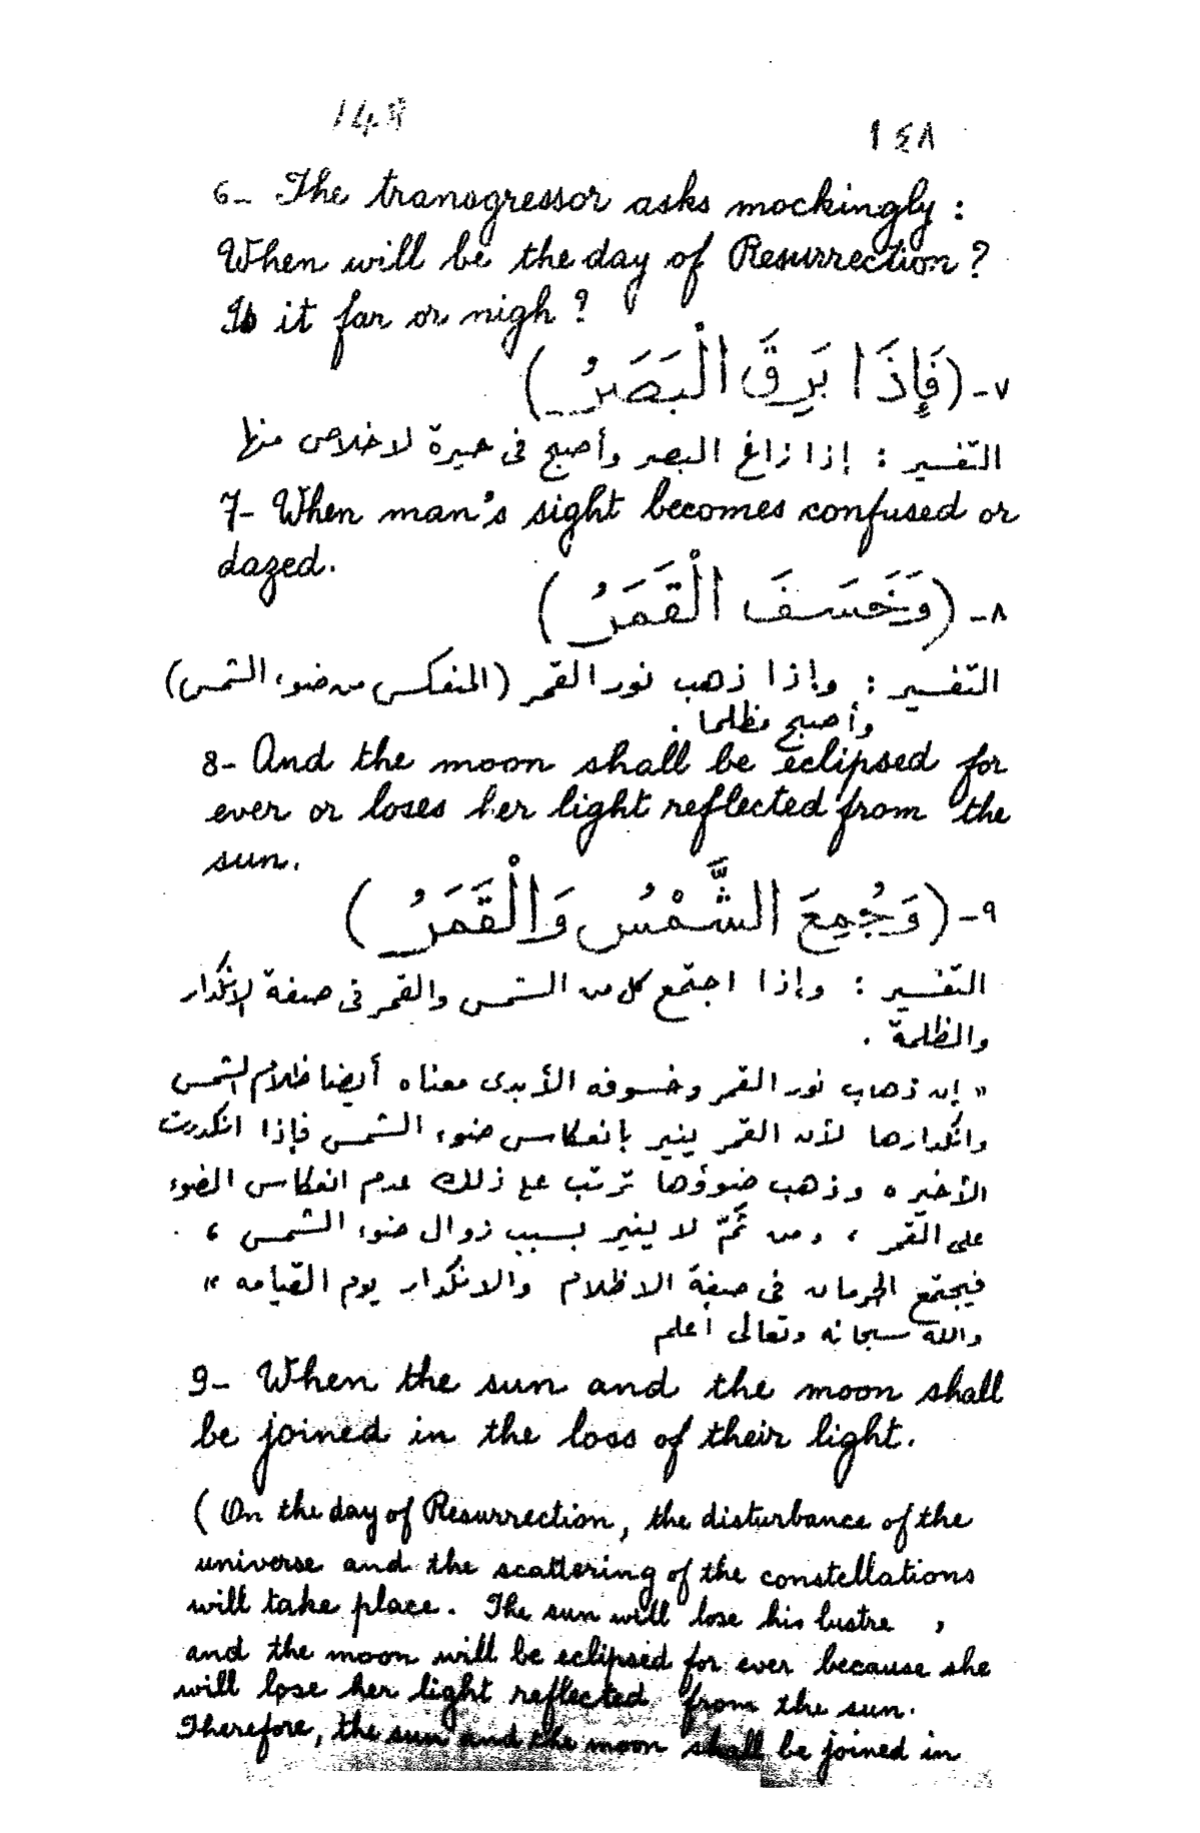 148
١٤٨
6- The transgressor asks mockingly :
When will be the day of Resurrection ?
Is it far or nigh ?
٧- (فَإِذَا بَرِقَ الْبَصَرُ)
التفسير : إذا زاغ البصر وأصبح فى حيرة لاخلاص منها
7- When man's sight becomes confused or
dazed.
٨- (وَخَسَفَ الْقَمَرُ)
التفسير : وإذا ذهب نور القمر (المنعكس من ضوء الشمس)
وأصبح مظلما .
8- And the moon shall be eclipsed for
ever or loses her light reflected from the
sun.
٩- (وَجُمِعَ الشَّمْسُ وَالْقَمَرُ)
التفسير : وإذا اجتمع كل من الشمس والقمر فى صفة الانكدار
والظلمة .
" إن ذهاب نور القمر وخسوفه الأبدى معناه أيضا ظلام الشمس
وانكدارها لأن القمر ينير بانعكاس ضوء الشمس فإذا انكدرت
الأخيره وذهب ضوؤها ترتب على ذلك عدم انعكاس الضوء
على القمر ، ومن ثَمّ لا ينير بسبب زوال ضوء الشمس ،
فيجتمع الجرمان فى صفة الاظلام والانكدار يوم القيامه "
والله سبحانه وتعالى أعلم
9- When the sun and the moon shall
be joined in the loss of their light.
( On the day of Resurrection, the disturbance of the
universe and the scattering of the constellations
will take place. The sun will lose his lustre ,
and the moon will be eclipsed for ever because she
will lose her light reflected from the sun.
Therefore, the sun and the moon shall be joined in